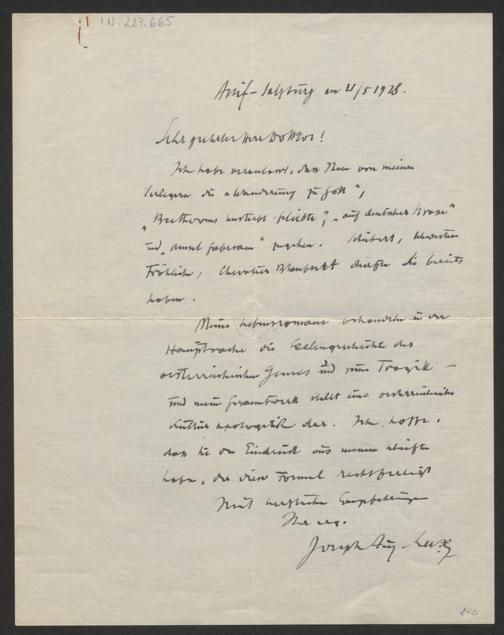 I.N. 227.665
Anif-Salzburg am 21/5 1928.
Sehr geehrter Herr Doktor!
Ich habe veranlasst, dass Ihnen von meinem
Verleger die
"Beethovens unsterbl. Geliebte", "auf deutscher Strasse"
und zugehen. Schubert, Schwestern
Fröhlich, Chevalier Blaubart dürften Sie bereits
haben.
Meine Lebensromane behandeln in der
Hauptsache die Seelengeschichte des
oesterreichischen Genies und seine Tragik –
und mein Gesamtwerk stellt eine oesterreichische
Kulturapologetik dar. Ich hoffe,
dass Sie den Eindruck aus meinen
haben, der diese Formel rechtfertigt
Mit herzlichen Empfehlungen
Ihr erg.
Joseph Aug. Lux